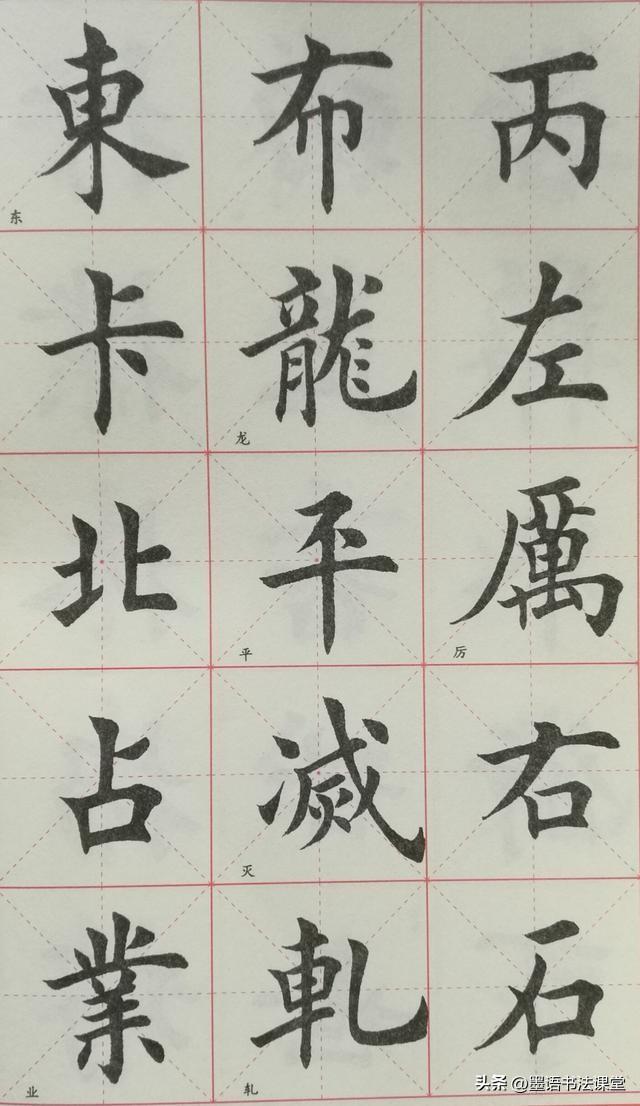 丙
左
厲
厉
右
石
布
龍
龙
平
平
滅
灭
軋
轧
東
东
卡
北
占
業
业
头条 @墨语书法课堂